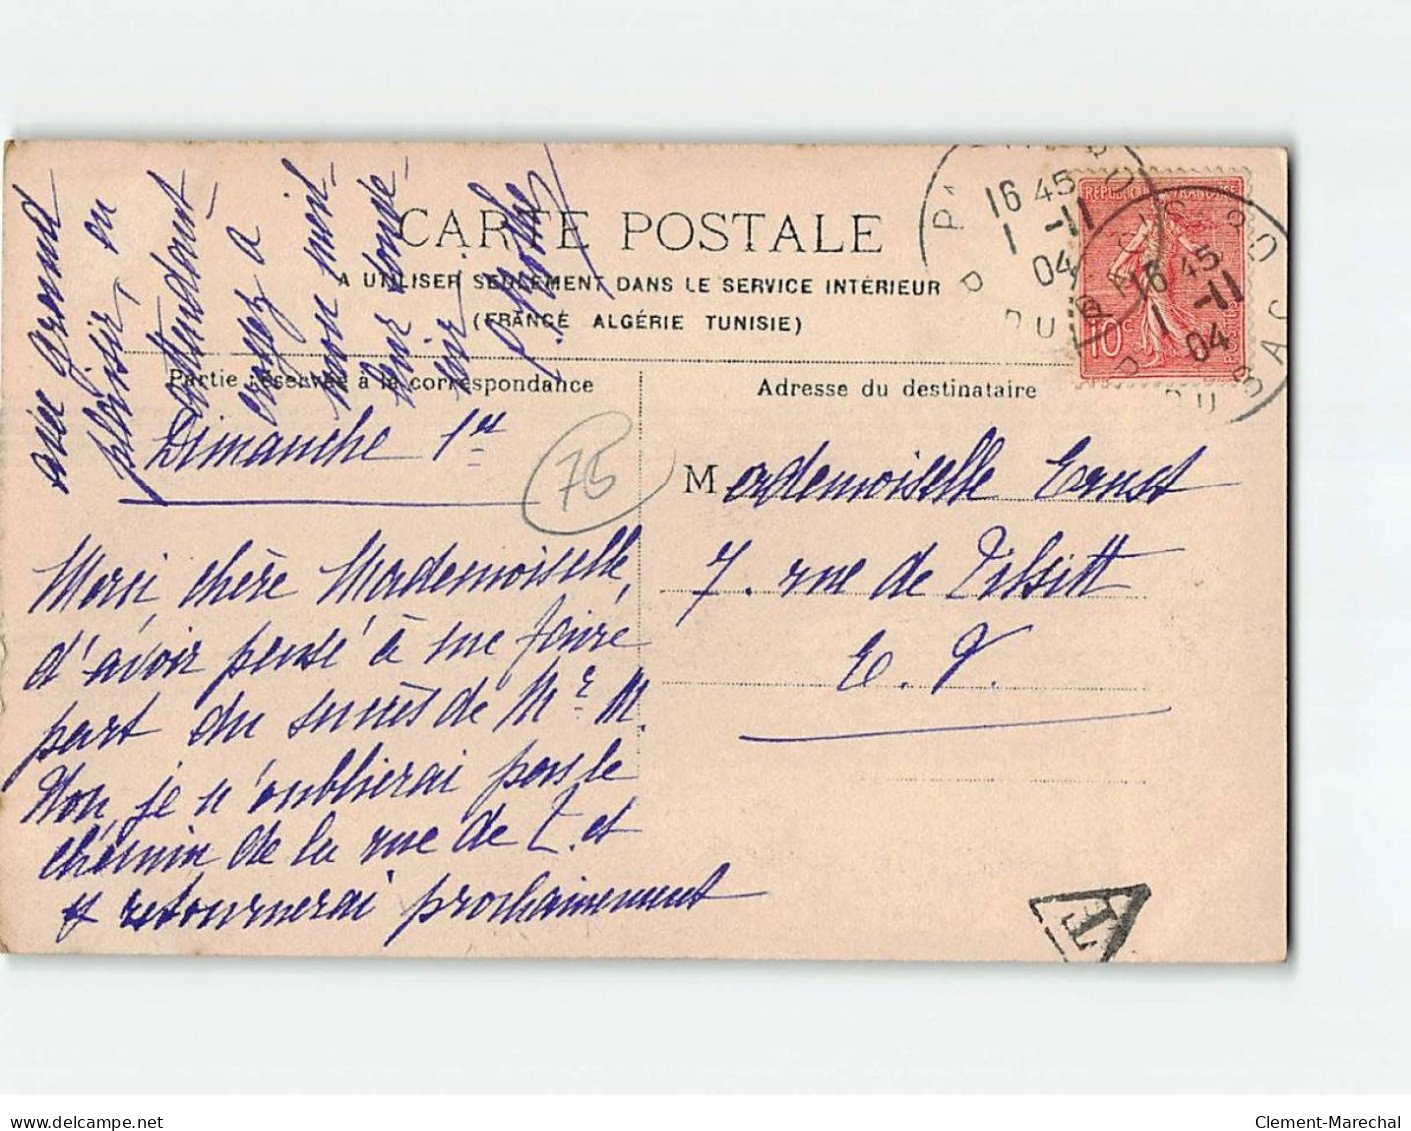 CARTE POSTALE
A UTILISER SEULEMENT DANS LE SERVICE INTÉRIEUR
(FRANCE ALGÉRIE TUNISIE)
Partie réservée à la correspondance
Adresse du destinataire
RÉPUBLIQUE FRANÇAISE
10 c
16 45
1 -11
04
16 45
1 -11
04
RUE DU BAC
75
T
Mademoiselle Ernst
7. rue de Tilsitt
E. V.
Dimanche 1er
Merci, chère Mademoiselle,
d'avoir pensé à me faire
part du succès de Mr M.
Non, je n'oublierai pas le
chemin de la rue de T. et
y retournerai prochainement
avec grand
plaisir, en
attendant
croyez à
mon
Clement-Marechal